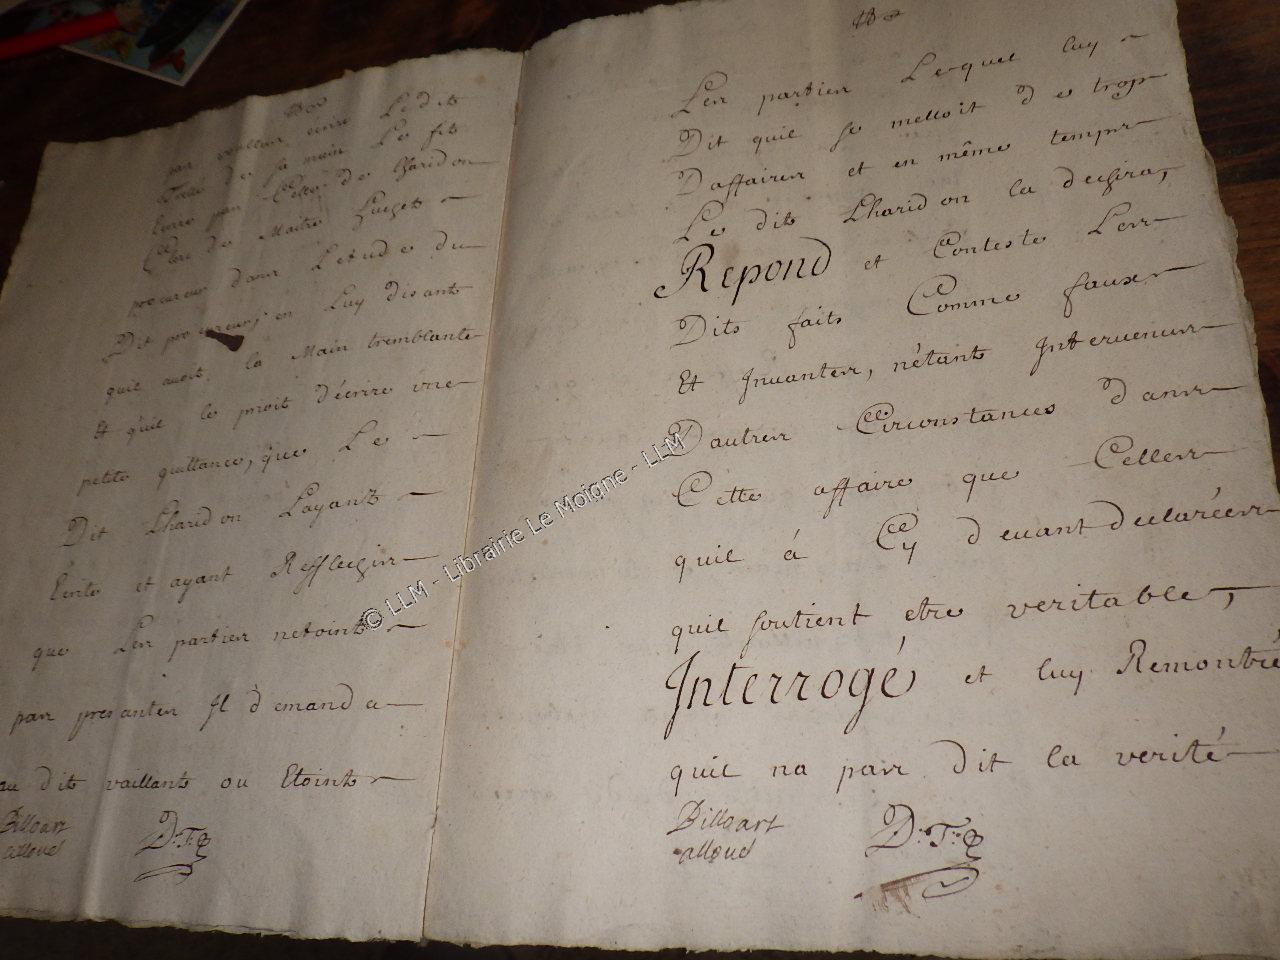 pas voulleu ecrire Ledit
de sa main Le fit
par de Lharidon
Clerc de Maitre
procureur dans Letude du
Dit procureur, en Luy disant
quil avoit la Main tremblante
Et quil le prioit D'écrire une
petite quittance, que Le
Dit Lharidon Layant
Ecrite et ayant Refflechir
que Les parties netoint
pas presantes Jl demanda
au dit vaillant ou Etoint
Billoart
alloué
D. T.
Les parties Lequel luy
Dit quil se melloit de trop
Daffaires et en même temps
Le dit Lharidon la dechira,
Repond et Conteste Les
Dits faits Comme faux
Et Jnvantes, n'étant Jntervenus
Dautres Circonstances dans
Cette affaire que Celles
quil á Cy devant declarées
quil soutient etre veritable,
Jnterrogé et luy Remontré
quil na pas dit la verité
Billoart
alloué
D. T.
© LLM - Librairie Le Moigne - LLM